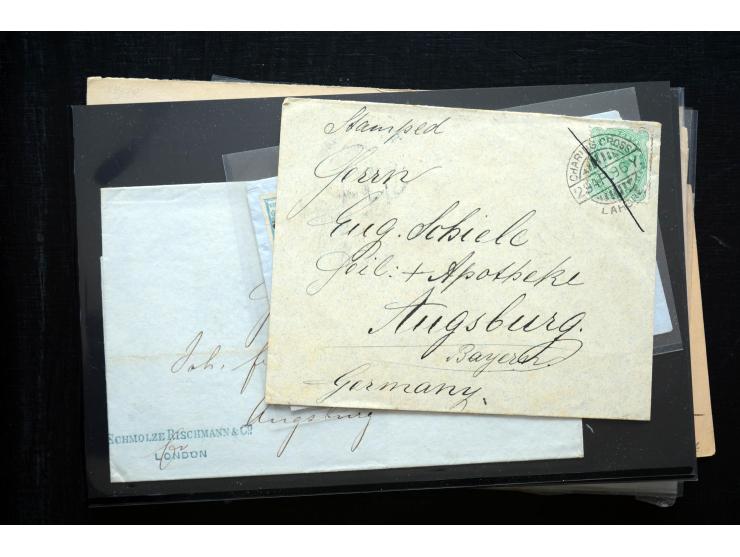 Stamped
Herrn
Eug. Schiele
Heil: + Apotheke
Augsburg.
Bayern.
Germany.
CHARING CROSS
96
Joh. f
Augsburg
SCHMOLZE RISCHMANN & Co
LONDON